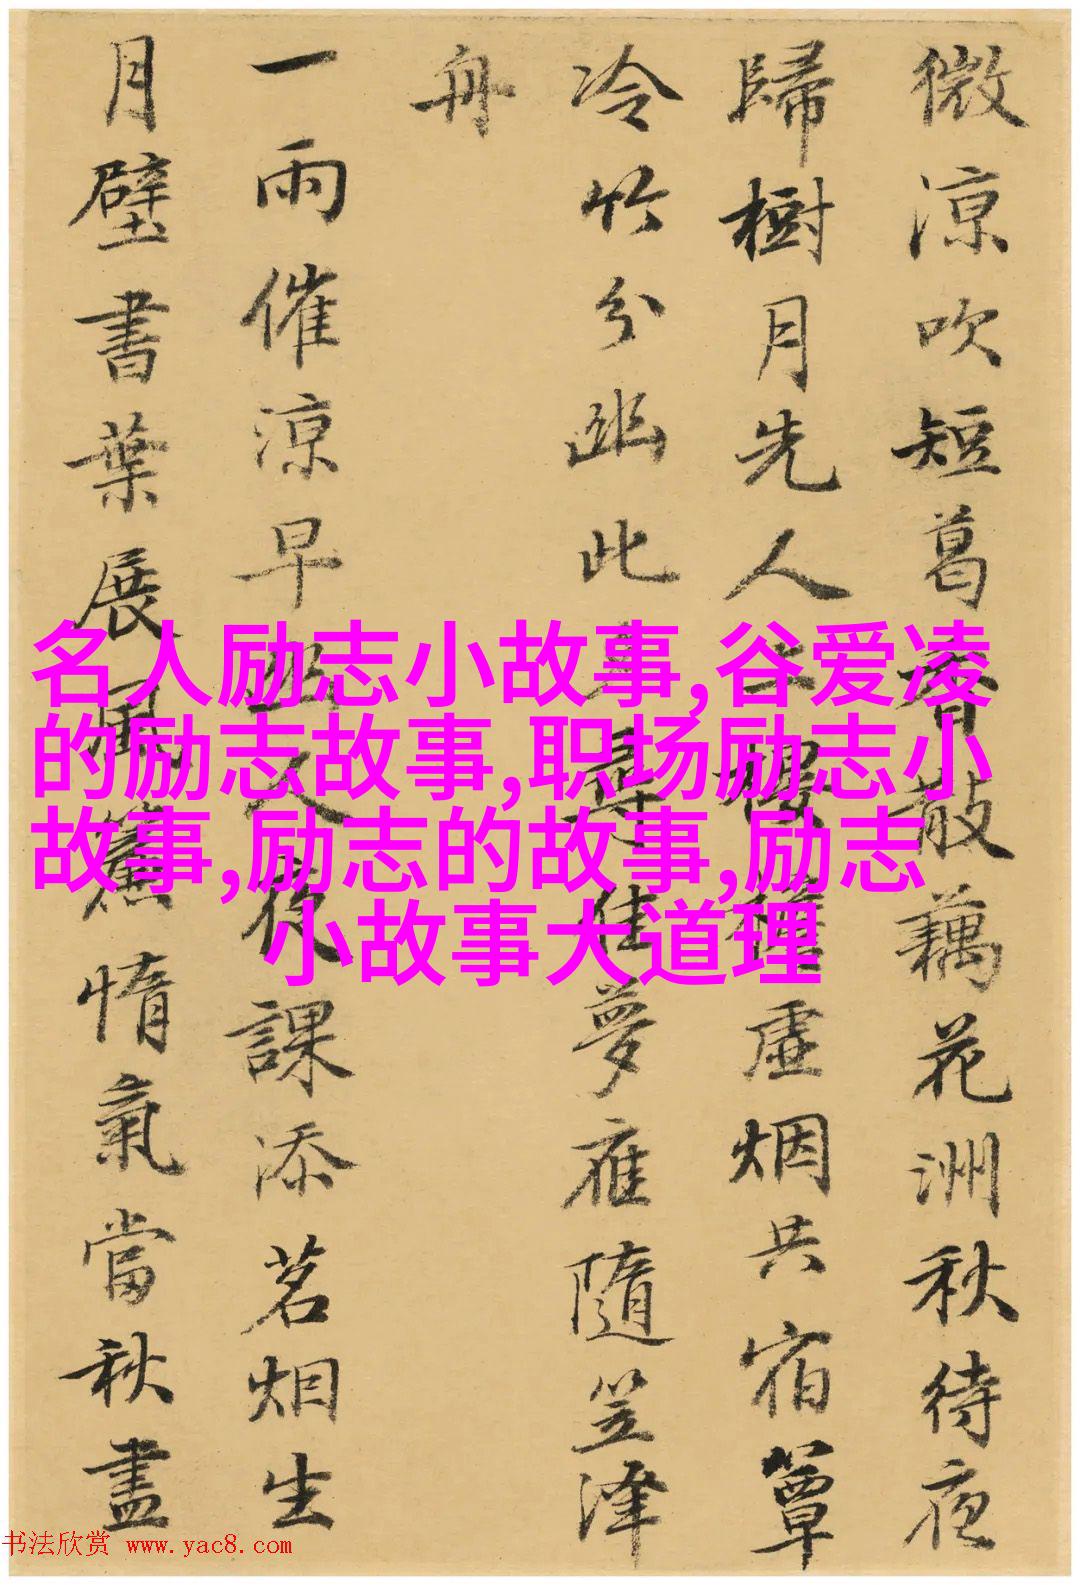 微涼吹短葛香散藕花洲秋待夜
歸樹月先人上樓牆虛烟共宿簟
冷竹分幽此尋佳夢雇隨笠澤
舟
一雨催涼早幽人夜課添茗烟生
月壁書葉展風簾惰氣當秋盡
名人励志小故事,谷爱凌
的励志故事,职场励志小
故事,励志的故事,励志
小故事大道理
书法欣赏 www.yac8.com